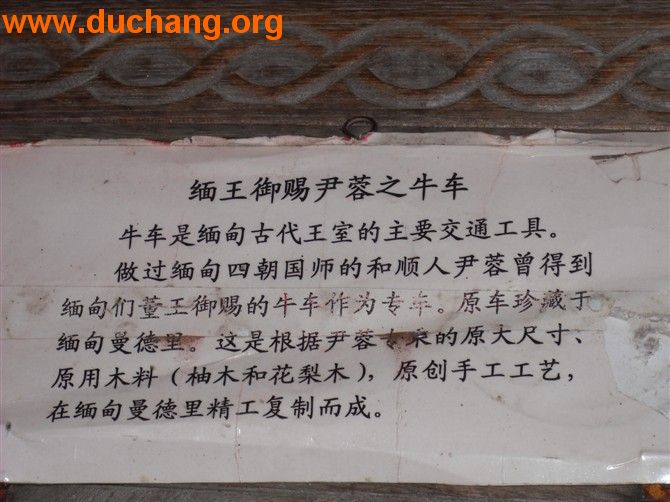 www.duchang.org
缅王御赐尹蓉之牛车
牛车是缅甸古代王室的主要交通工具。
做过缅甸四朝国师的和顺人尹蓉曾得到
缅甸们董王御赐的牛车作为专车。原车珍藏于
缅甸曼德里。这是根据尹蓉专乘的原大尺寸、
原用木料（柚木和花梨木），原创手工工艺，
在缅甸曼德里精工复制而成。